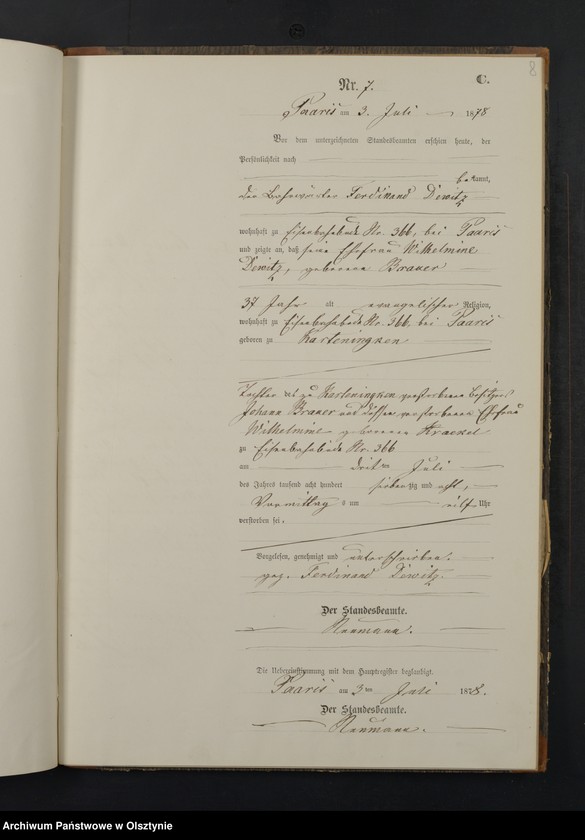 8
Nr. 7.
C.
Paaris am 3. Juli 1878
Vor dem unterzeichneten Standesbeamten erschien heute, der
Persönlichkeit nach
bekannt,
der Bahnwärter Ferdinand Dewitz
wohnhaft zu Eisenbahnbude Nr. 366, bei Paaris
und zeigte an, daß seine Ehefrau Wilhelmine
Dewitz, geborene Brauer
37 Jahr alt evangelischer Religion,
wohnhaft zu Eisenbahnbude Nr. 366, bei Paaris
geboren zu Karteningken
Tochter des zu Karteningken verstorbenen Besitzers
Johann Brauer und dessen verstorbenen Ehefrau
Wilhelmine geborenen
zu Eisenbahnbude Nr. 366
am dritten Juli
des Jahres tausend acht hundert siebenzig und acht,
Vormittags um elf Uhr
verstorben sei.
Vorgelesen, genehmigt und unterschrieben.
gez. Ferdinand Dewitz.
Der Standesbeamte.
Naumann.
Die Uebereinstimmung mit dem Hauptregister beglaubigt.
Paaris am 3ten Juli 1878.
Der Standesbeamte.
Naumann.
Archiwum Państwowe w Olsztynie